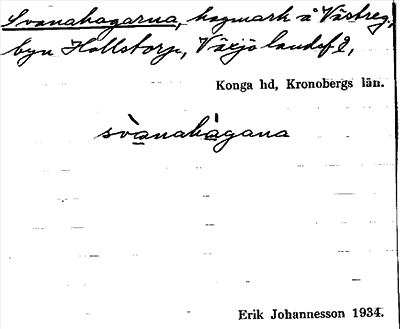 Svanahagarna, hagmark å Västreg,
byn Hallstorp, Växjö landsf 2,
Konga hd, Kronobergs län.
svanahagana
Erik Johannesson 1934.